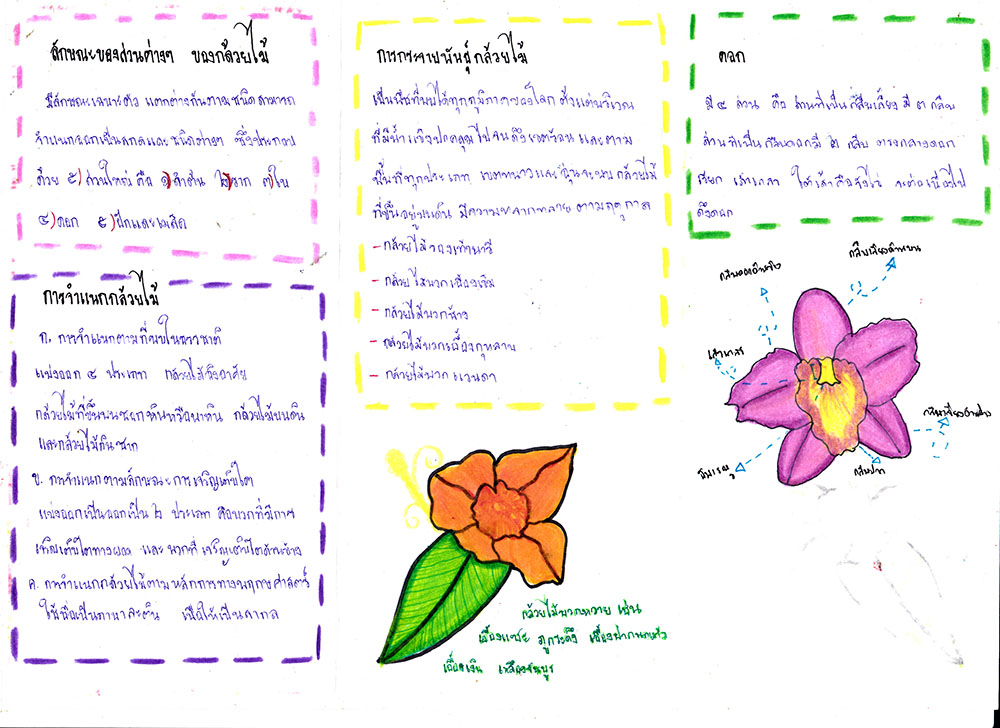 ลักษณะของส่วนต่างๆ ของกล้วยไม้
มีลักษณะเฉพาะตัว แตกต่างกันตามชนิดสามารถ
จำแนกออกเป็นสกุลและชนิดต่างๆ ซึ่งประกอบ
ด้วย ๕) ส่วนใหญ่ คือ ๑) ลำต้น ๒) ราก ๓) ใบ
๔) ดอก ๕) ฝักและเมล็ด
การจำแนกกล้วยไม้
ก. การจำแนกตามที่พบในธรรมชาติ
แบ่งออก ๔ ประเภท กล้วยไม้อิงอาศัย
กล้วยไม้ที่ขึ้นบนซอกหินหรือผาหิน กล้วยไม้บนดิน
และกล้วยไม้กินซาก
ข. การจำแนกตามลักษณะการเจริญเติบโต
แบ่งออกเป็นออกเป็น ๒ ประเภท คือพวกที่มีการ
เจริญเติบโตทางยอด และ พวกที่ เจริญเติบโตด้านข้าง
ค. การจำแนกกล้วยไม้ตามหลักการทางพฤกษศาสตร์
ใช้ชื่อเป็นภาษาละติน เพื่อให้เป็นสากล
การกระจายพันธุ์กล้วยไม้
เป็นพืชที่พบได้ทุกภูมิภาคของโลก ตั้งแต่บริเวณ
ที่มีน้ำแข็งปกคลุมไปจนถึงเขตร้อน และตาม
พื้นที่ทุกประเภท เขตหนาวและอุ่นจะพบกล้วยไม้
ที่ขึ้นอยู่บนดิน มีความหลากหลายตามฤดูกาล
- กล้วยไม้รองเท้านารี
- กล้วยไม้พวกเอื้องเงิน
- กล้วยไม้พวกช้าง
- กล้วยไม้พวกเอื้องกุหลาบ
- กล้วยไม้พวกแวนดา
กล้วยไม้พวกหวาย เช่น
เอื้องแซะ ภูกระดึง เอื้องปากนกแก้ว
เอื้องเงิน เหลืองจันบูร
ดอก
มี ๔ ส่วน คือ ส่วนที่เป็นกลีบเลี้ยง มี ๓ กลีบ
ส่วนที่เป็นกลีบดอกมี ๓ กลีบ ตรงกลางดอก
เรียก เส้าเกสร ใต้เส้าคือรังไข่ จะต่อเนื่องไป
ถึงดอก
กลีบเลี้ยงด้านบน
เส้าเกสร
กลีบเลี้ยงด้านล่าง
กลีบปาก